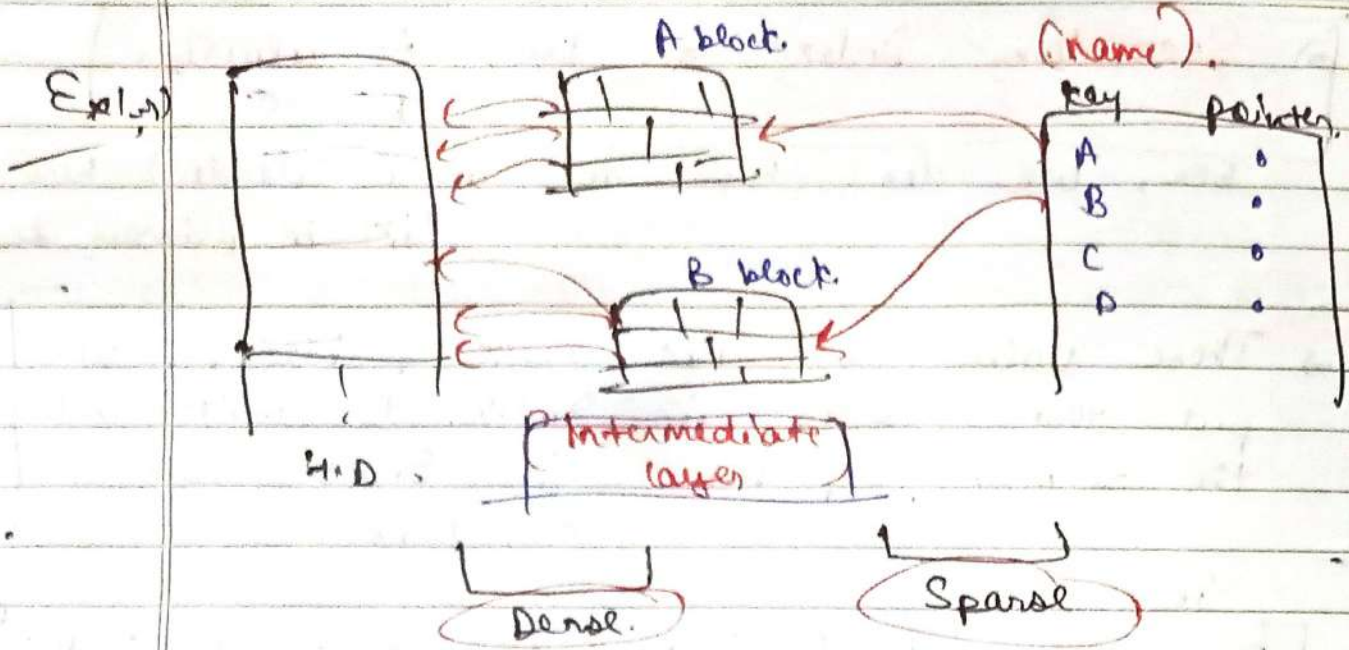 A block.
(name).
key pointer.
A
B
C
D
B block.
Intermediate
layer
H.D.
Dense.
Sparse